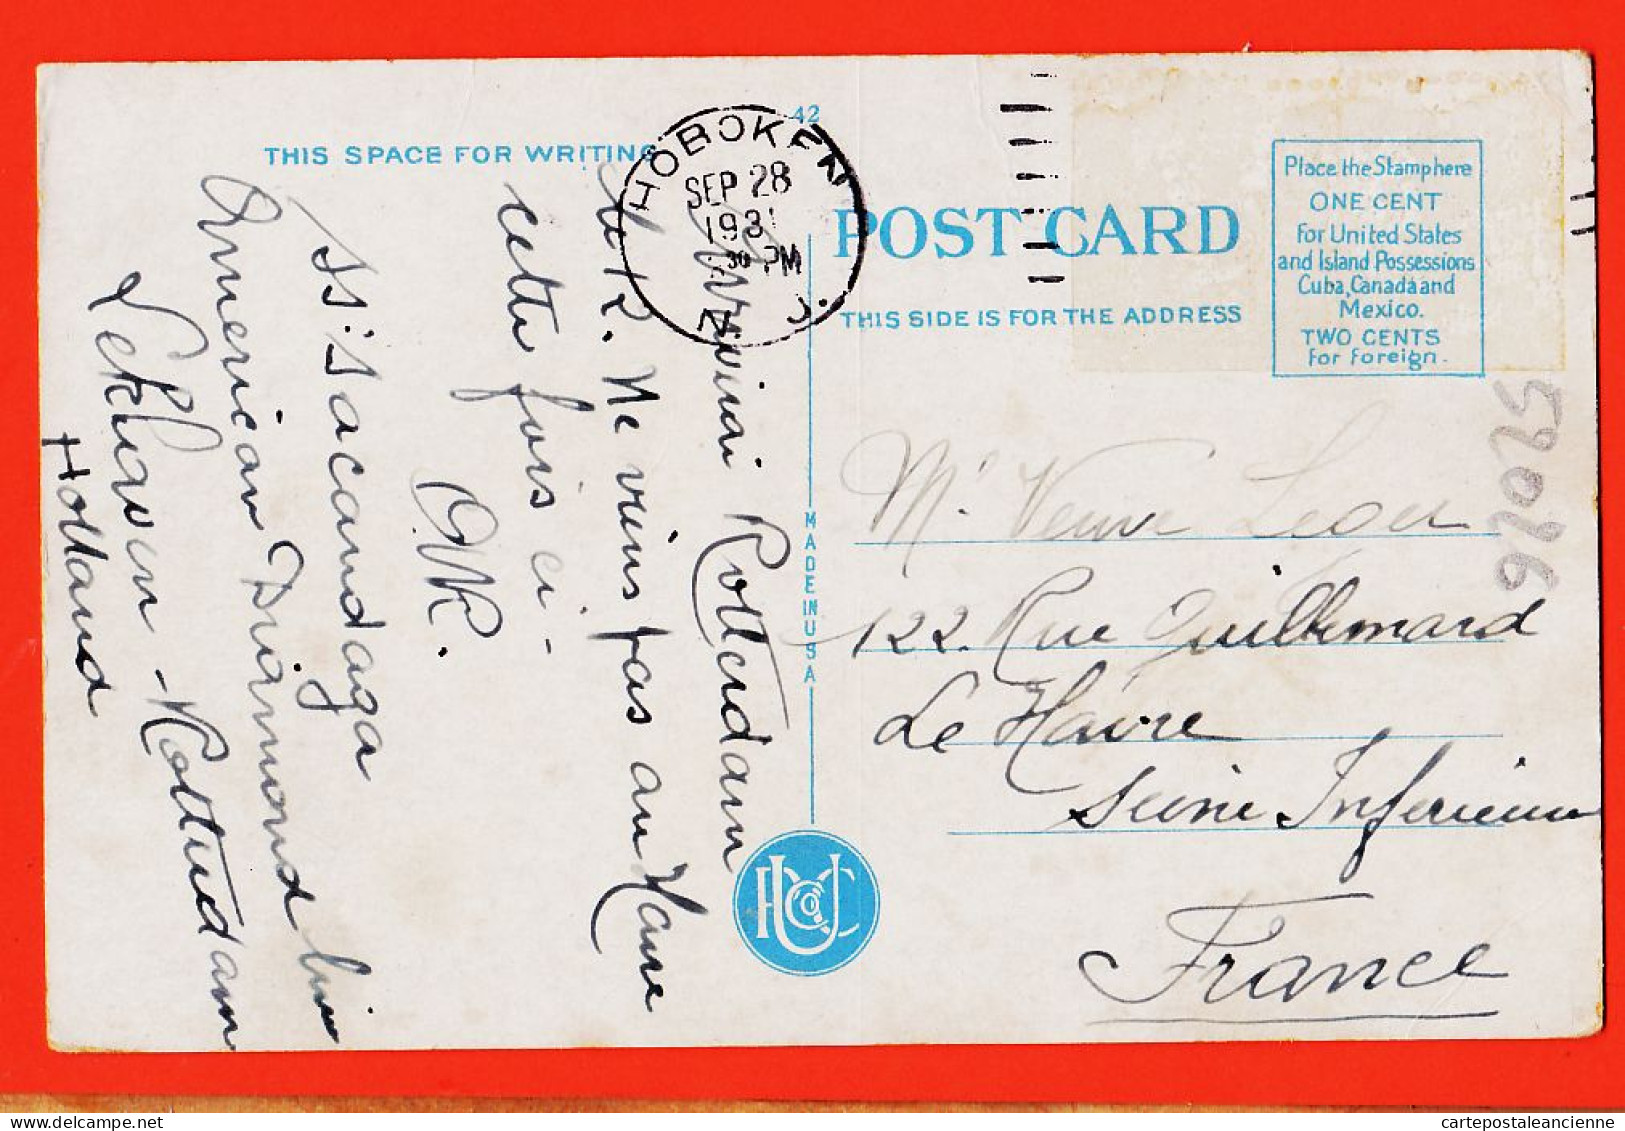 42
THIS SPACE FOR WRITING
HOBOKEN
SEP 28
1931
30 PM
N. J.
POST CARD
THIS SIDE IS FOR THE ADDRESS
Place the Stamp here
ONE CENT
for United States
and Island Possessions
Cuba, Canada and
Mexico.
TWO CENTS
for foreign.
52026
Rotterdam
le R. Ne viens pas au Havre
cette fois ci-
Ss: Sacandaga
American Diamond lin
Lekhaven - Rotterdam
Holland
MADE IN USA
Me Veuve Leger
122 Rue Guillemard
Le Havre
Seine Inferieure
France
cartepostaleancienne.com